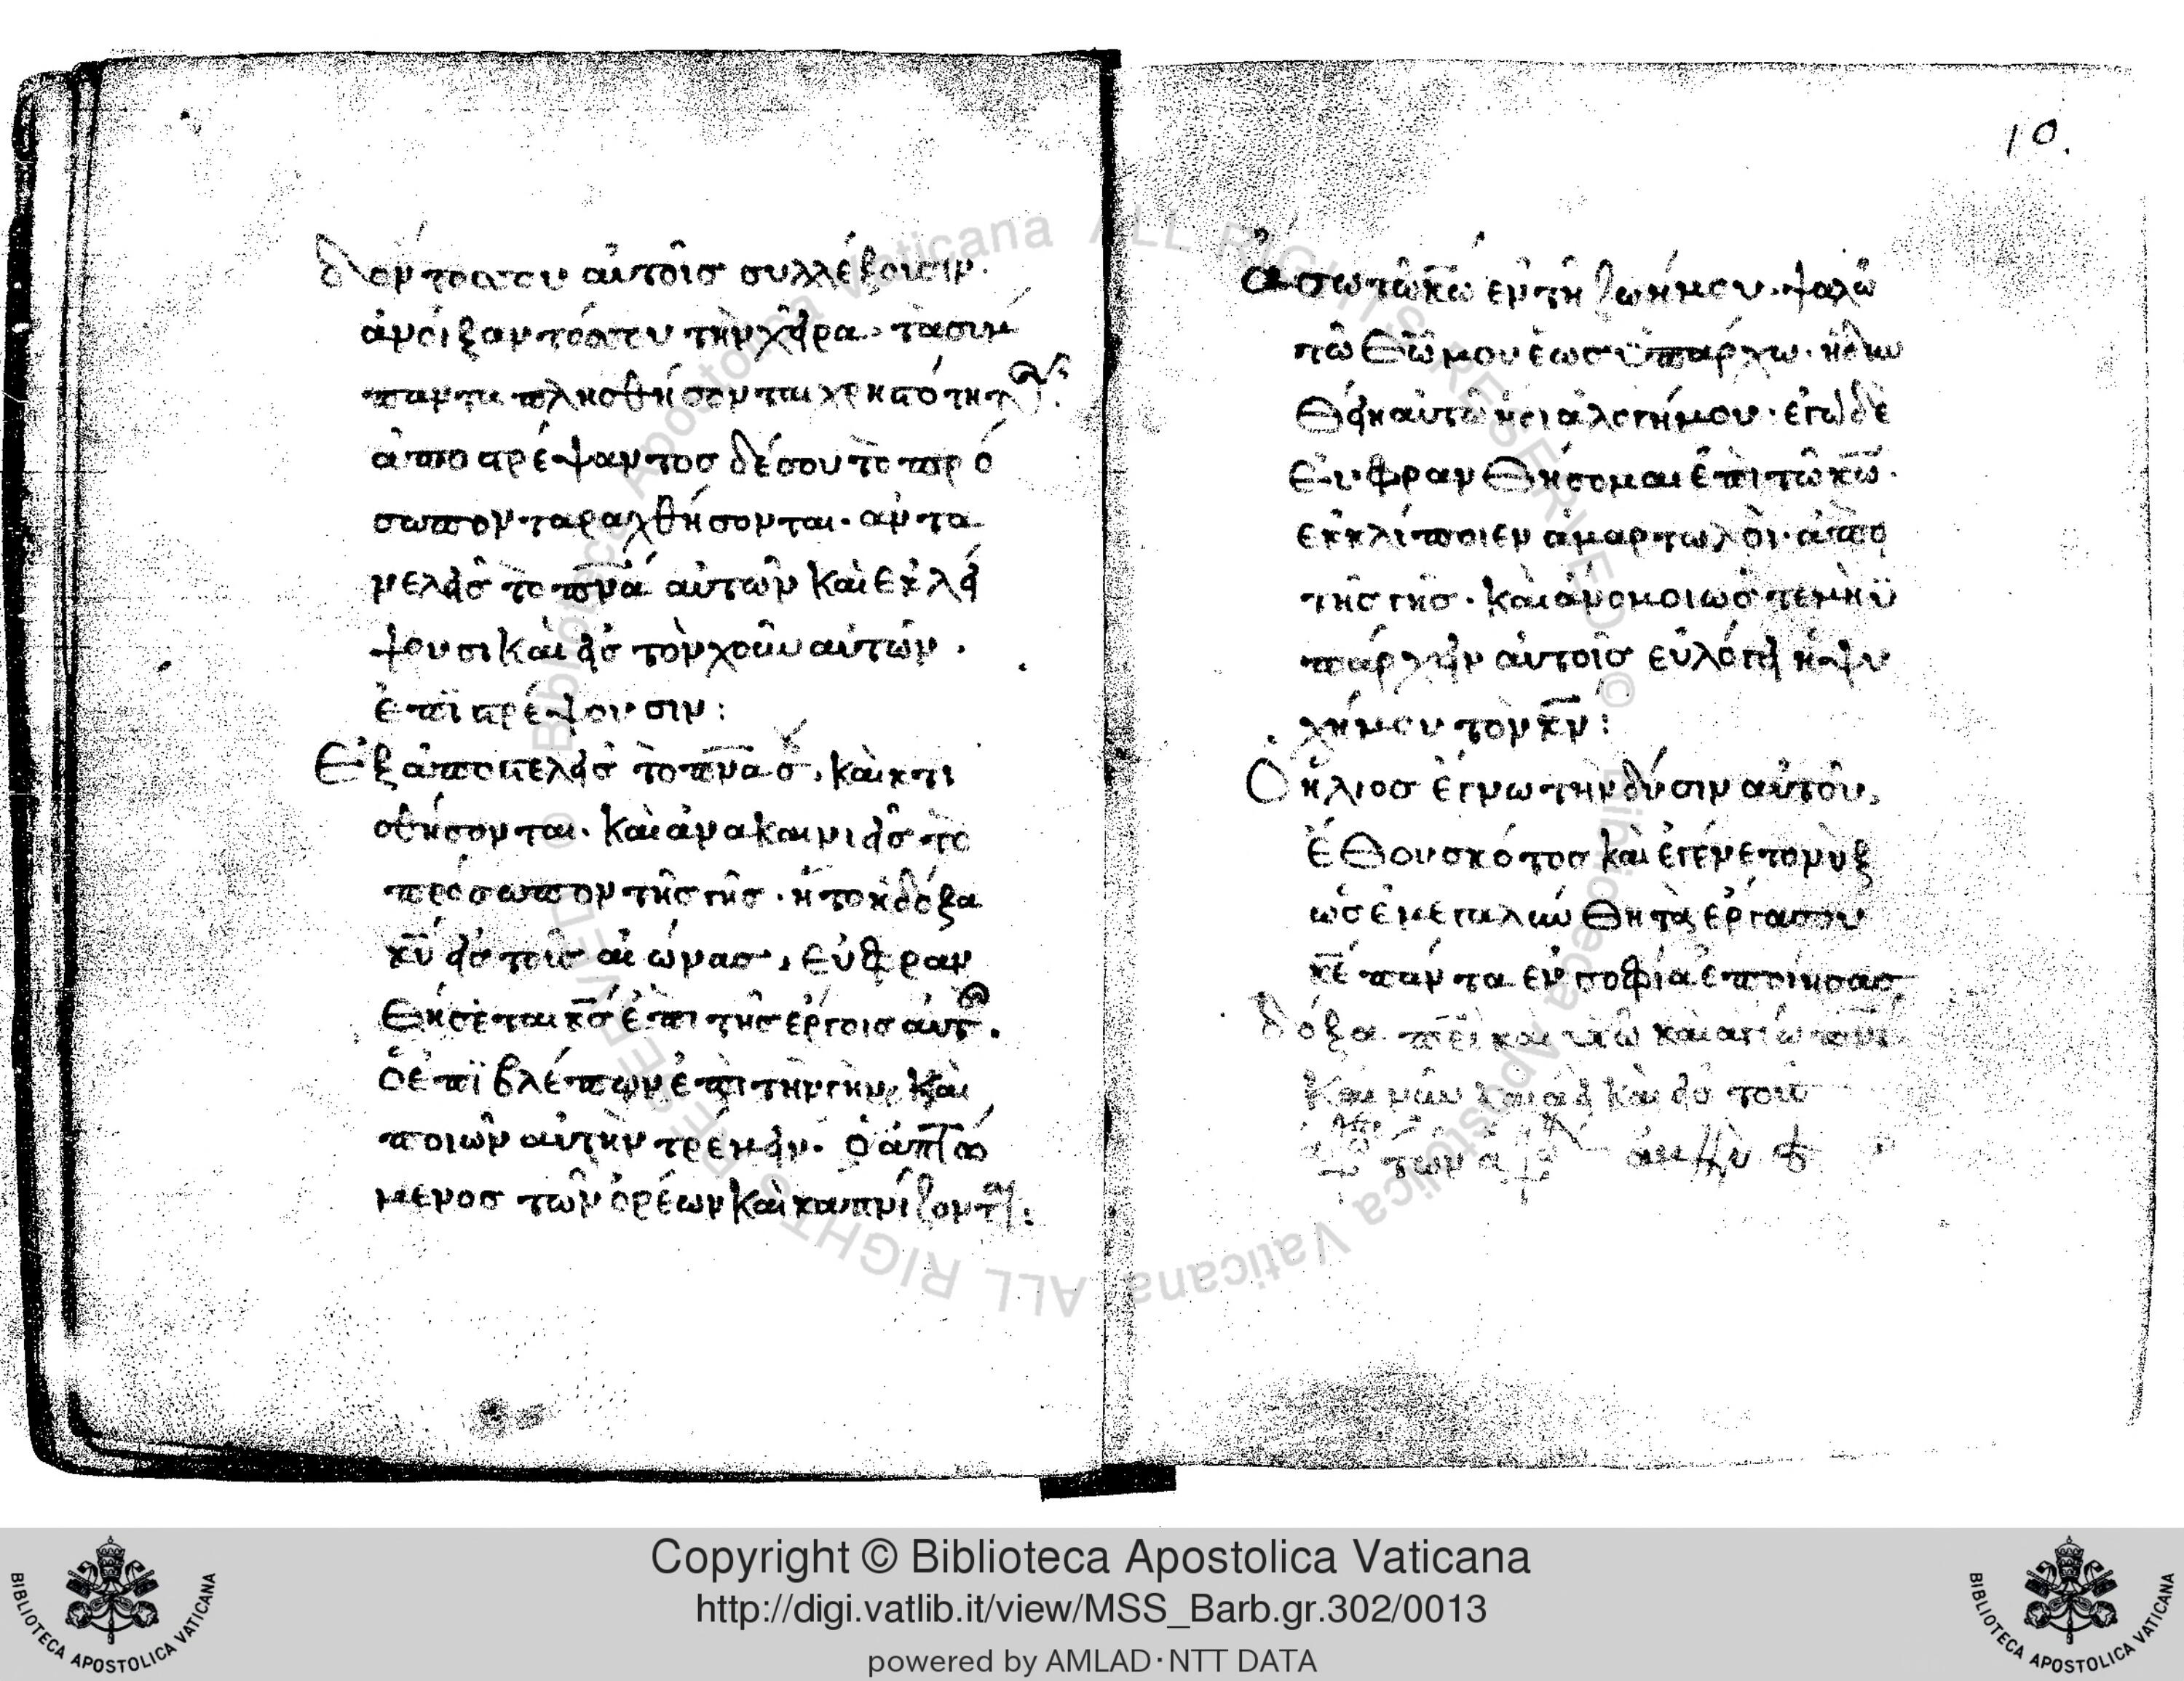 δόντος σου αὐτοῖς συλλέξουσιν.
ἀνοίξαντός σου τὴν χεῖρα. τὰ σύμ
παντα πλησθήσονται χρηστότητος.
ἀποστρέψαντος δέ σου τὸ πρό
σωπον ταραχθήσονται. ἀντα
νελεῖς τὸ πνα αὐτῶν καὶ ἐκλεί
ψουσι καὶ εἰς τὸν χοῦν αὐτῶν.
ἐπιστρέψουσιν:
Ἐξαποστελεῖς τὸ πνα σ, καὶ κτι
σθήσονται. καὶ ἀνακαινιεῖς τὸ
πρόσωπον τῆς γῆς. ἤτω ἡ δόξα
κυ εἰς τοὺς αἰῶνας, εὐφραν
θήσεται κς ἐπὶ τῆς ἔργοις αὐτοῦ.
ὁ ἐπιβλέπων ἐπὶ τὴν γῆν καὶ
ποιῶν αὐτὴν τρέμειν. ὁ ἁπτό
μενος τῶν ὀρέων καὶ καπνίζονται:
10.
ᾄσω τῶ κω ἐν τῇ ζωῇ μου. ψαλῶ
τῶ θω μου ἕως ὑπάρχω. ἡδυν
θείη αὐτῶ ἡ διαλογή μου. ἐγὼ δὲ
εὐφρανθήσομαι ἐπὶ τῶ κω.
ἐκλίποιεν ἁμαρτωλοὶ ἀπὸ
τῆς γῆς. καὶ ἄνομοι ὥστε μὴ ὑ
πάρχειν αὐτοῖς εὐλόγει ἡ ψυ
χή μου τὸν κν:
Ὁ ἥλιος ἔγνω τὴν δύσιν αὐτοῦ,
ἔθου σκότος καὶ ἐγένετο νὺξ
ὡς ἐμεγαλύνθη τὰ ἔργα σου
κε πάντα ἐν σοφία ἐποίησας
δόξα πρι και υιω και αγίω πνι
Και νυν και αεί και εις τους
Copyright © Biblioteca Apostolica Vaticana
http://digi.vatlib.it/view/MSS_Barb.gr.302/0013
powered by AMLAD·NTT DATA
BIBLIOTECA APOSTOLICA VATICANA
BIBLIOTECA APOSTOLICA VATICANA